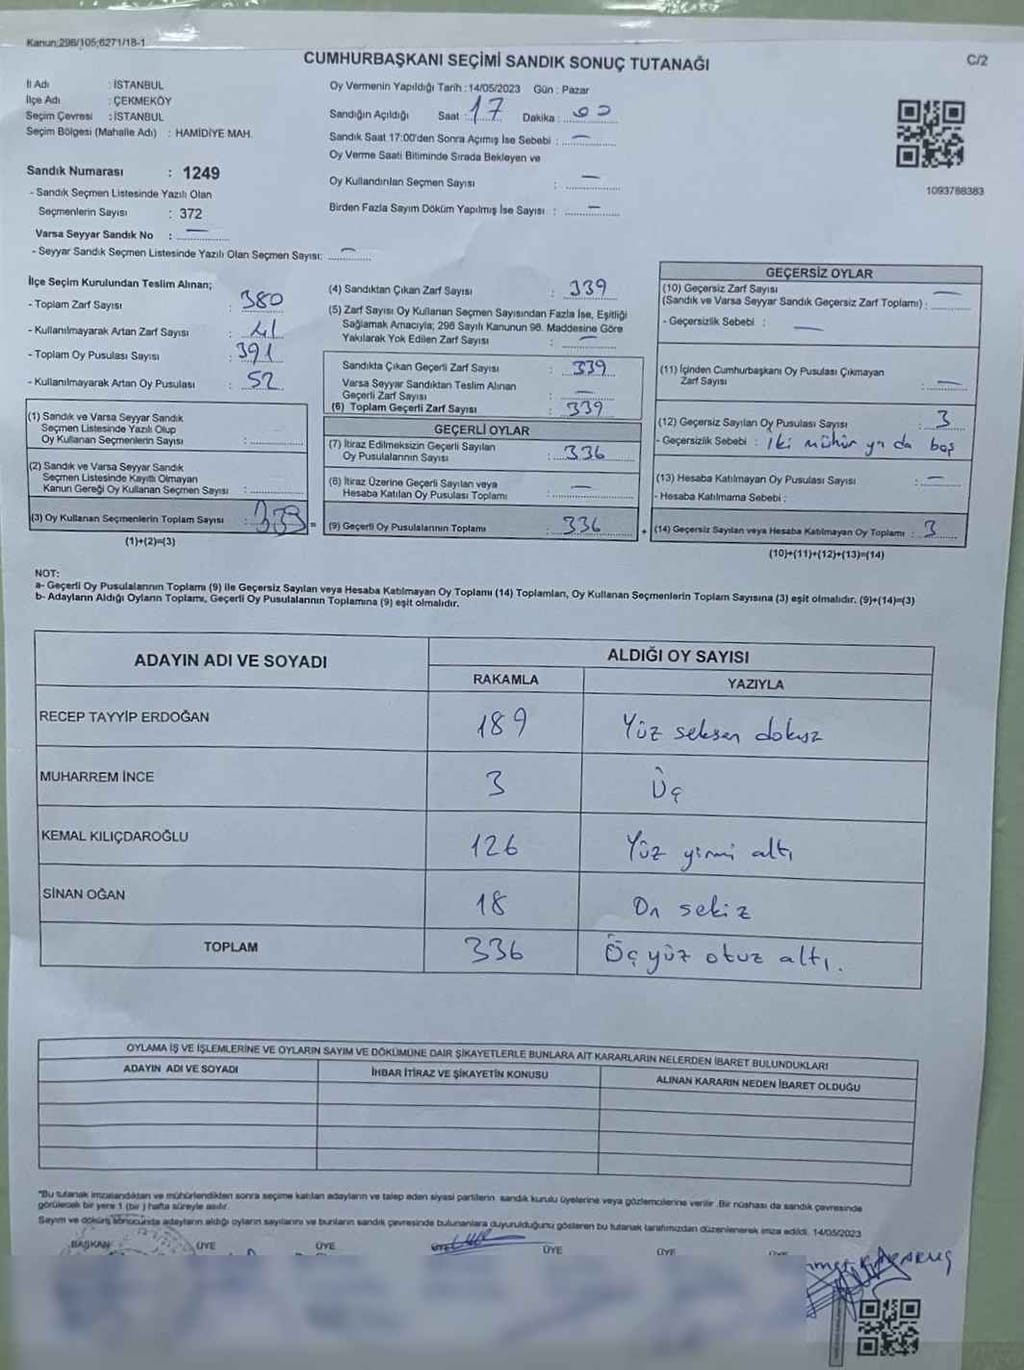 Kanun:298/105;6271/18-1
CUMHURBAŞKANI SEÇİMİ SANDIK SONUÇ TUTANAĞI
C/2
İl Adı : İSTANBUL
İlçe Adı : ÇEKMEKÖY
Seçim Çevresi : İSTANBUL
Seçim Bölgesi (Mahalle Adı) : HAMİDİYE MAH.
Oy Vermenin Yapıldığı Tarih : 14/05/2023 Gün : Pazar
Sandığın Açıldığı Saat : 17 Dakika : 00
Sandık Saat 17:00'den Sonra Açımış İse Sebebi : —
Oy Verme Saati Bitiminde Sırada Bekleyen ve
Oy Kullandırılan Seçmen Sayısı : —
Birden Fazla Sayım Döküm Yapılmış İse Sayısı : —
1093788383
Sandık Numarası : 1249
- Sandık Seçmen Listesinde Yazılı Olan
Seçmenlerin Sayısı : 372
Varsa Seyyar Sandık No : —
- Seyyar Sandık Seçmen Listesinde Yazılı Olan Seçmen Sayısı: —
İlçe Seçim Kurulundan Teslim Alınan;
- Toplam Zarf Sayısı : 380
- Kullanılmayarak Artan Zarf Sayısı : 41
- Toplam Oy Pusulası Sayısı : 391
- Kullanılmayarak Artan Oy Pusulası : 52
(1) Sandık ve Varsa Seyyar Sandık
Seçmen Listesinde Yazılı Olup
Oy Kullanan Seçmenlerin Sayısı :
(2) Sandık ve Varsa Seyyar Sandık
Seçmen Listesinde Kayıtlı Olmayan
Kanun Gereği Oy Kullanan Seçmen Sayısı :
(3) Oy Kullanan Seçmenlerin Toplam Sayısı : 339
(1)+(2)=(3)
(4) Sandıktan Çıkan Zarf Sayısı : 339
(5) Zarf Sayısı Oy Kullanan Seçmen Sayısından Fazla İse, Eşitliği
Sağlamak Amacıyla; 298 Sayılı Kanunun 98. Maddesine Göre
Yakılarak Yok Edilen Zarf Sayısı : —
Sandıkta Çıkan Geçerli Zarf Sayısı : 339
Varsa Seyyar Sandıktan Teslim Alınan
Geçerli Zarf Sayısı : —
(6) Toplam Geçerli Zarf Sayısı : 339
GEÇERLİ OYLAR
(7) İtiraz Edilmeksizin Geçerli Sayılan
Oy Pusulalarının Sayısı : 336
(8) İtiraz Üzerine Geçerli Sayılan veya
Hesaba Katılan Oy Pusulası Toplamı : —
= (9) Geçerli Oy Pusulalarının Toplamı : 336
GEÇERSİZ OYLAR
(10) Geçersiz Zarf Sayısı
(Sandık ve Varsa Seyyar Sandık Geçersiz Zarf Toplamı) : —
- Geçersizlik Sebebi : —
(11) İçinden Cumhurbaşkanı Oy Pusulası Çıkmayan
Zarf Sayısı : —
(12) Geçersiz Sayılan Oy Pusulası Sayısı : 3
- Geçersizlik Sebebi : iki mühür ya da boş
(13) Hesaba Katılmayan Oy Pusulası Sayısı : —
- Hesaba Katılmama Sebebi :
+ (14) Geçersiz Sayılan veya Hesaba Katılmayan Oy Toplamı : 3
(10)+(11)+(12)+(13)=(14)
NOT:
a- Geçerli Oy Pusulalarının Toplamı (9) ile Geçersiz Sayılan veya Hesaba Katılmayan Oy Toplamı (14) Toplamları, Oy Kullanan Seçmenlerin Toplam Sayısına (3) eşit olmalıdır. (9)+(14)=(3)
b- Adayların Aldığı Oyların Toplamı, Geçerli Oy Pusulalarının Toplamına (9) eşit olmalıdır.
ADAYIN ADI VE SOYADI
ALDIĞI OY SAYISI
RAKAMLA YAZIYLA
RECEP TAYYİP ERDOĞAN 189 Yüz seksen dokuz
MUHARREM İNCE 3 Üç
KEMAL KILIÇDAROĞLU 126 Yüz yirmi altı
SİNAN OĞAN 18 On sekiz
TOPLAM 336 Üçyüz otuz altı.
OYLAMA İŞ VE İŞLEMLERİNE VE OYLARIN SAYIM VE DÖKÜMÜNE DAİR ŞİKAYETLERLE BUNLARA AİT KARARLARIN NELERDEN İBARET BULUNDUKLARI
ADAYIN ADI VE SOYADI İHBAR İTİRAZ VE ŞİKAYETİN KONUSU ALINAN KARARIN NEDEN İBARET OLDUĞU
"Bu tutanak imzalandıktan ve mühürlendikten sonra seçime katılan adayların ve talep eden siyasi partilerin sandık kurulu üyelerine veya gözlemcilerine verilir .Bir nüshası da sandık çevresinde
görülecek bir yere 1 (bir ) hafta süreyle asılır.
Sayım ve döküm sonucunda adayların aldığı oyların sayılarını ve bunların sandık çevresinde bulunanlara duyurulduğunu gösteren bu tutanak tarafımızdan düzenlenerek imza edildi. 14/05/2023
BAŞKAN ÜYE ÜYE ÜYE ÜYE ÜYE